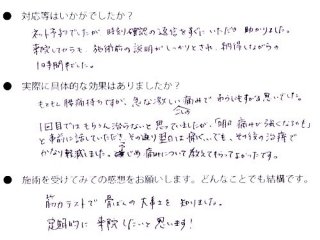 ● 対応等はいかがでしたか？
ネット予約でしたが 時刻確認の返信をすぐにいただき 助かりました。
来院してからも、施術前の説明がしっかりとされ、納得しながらの
1時間でした。
● 実際に具体的な効果はありましたか？
もともと腰痛持ちですが、急な激しい痛みで わらいもすがる思いでした。
1回目ではもちろん治らないと思っていましたが、「明日 痛みが強くなるかも」
と事前に話していただき その通り翌日は痛く、でも、その後の治療で
かなり軽減しました。 痛みについて教えてもらってよかったです。
● 施術を受けてみての感想をお願いします。どんなことでも結構です。
筋力テストで 骨ばんの大事さを 知りました。
定期的に 来院したいと思います！